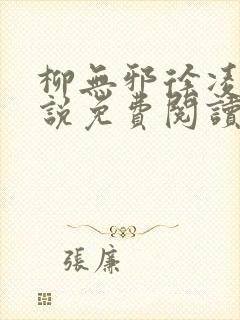 柳無邪徐凌
說免費閱讀
張廉